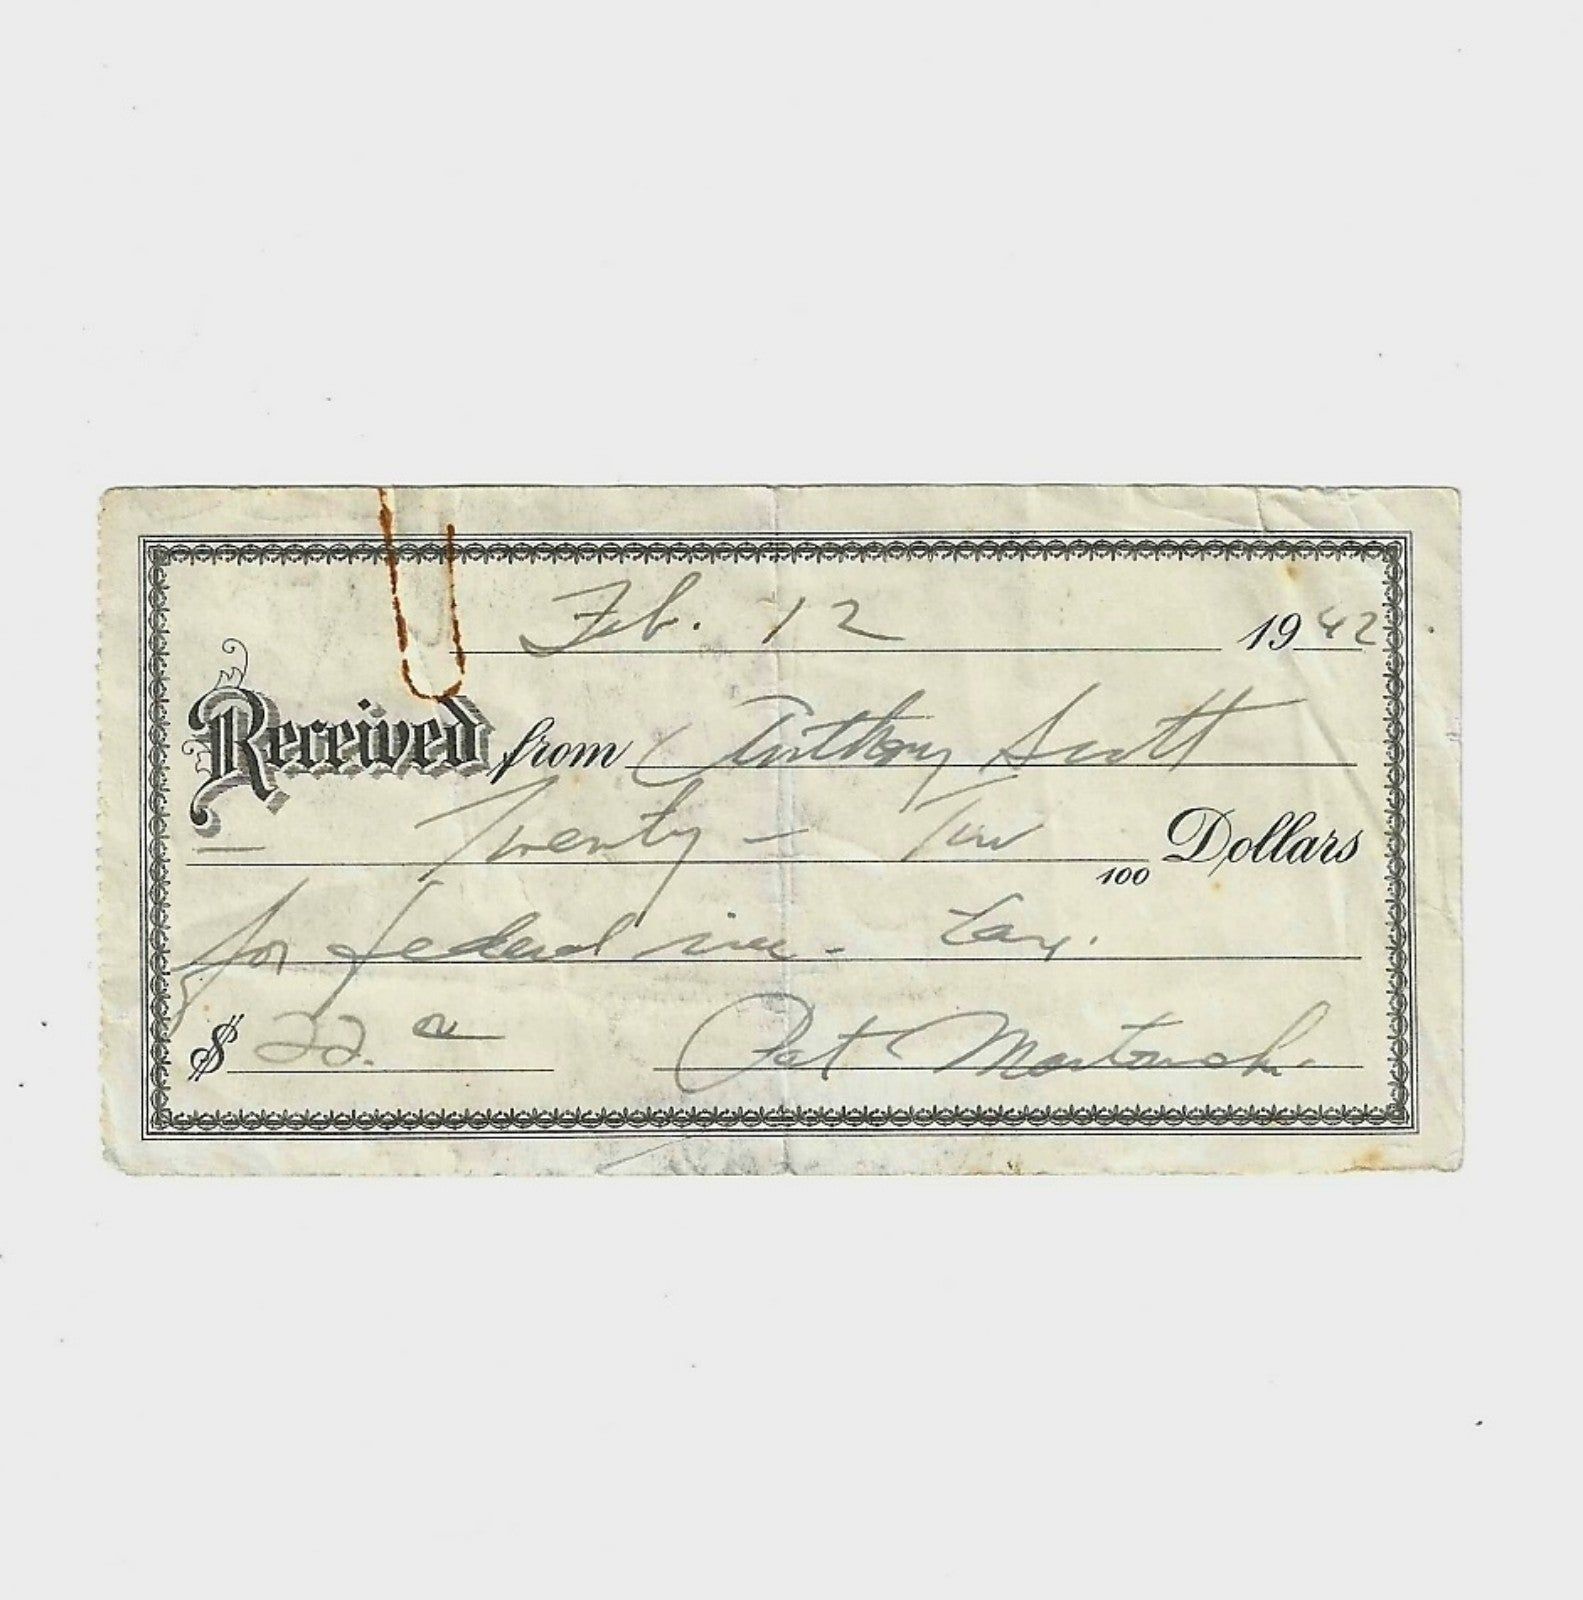 Feb. 12 1942
Received from Anthony Scott
— Twenty - Two 100 Dollars
for federal inc. tax.
$ 22. Pat